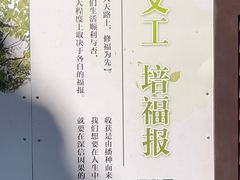 义工 培福报
天路上，修福为先
们生活顺利与否，
大程度上取决于各自的福报
收获是由播种而来
我们想要在人生中
就要在深信因果的